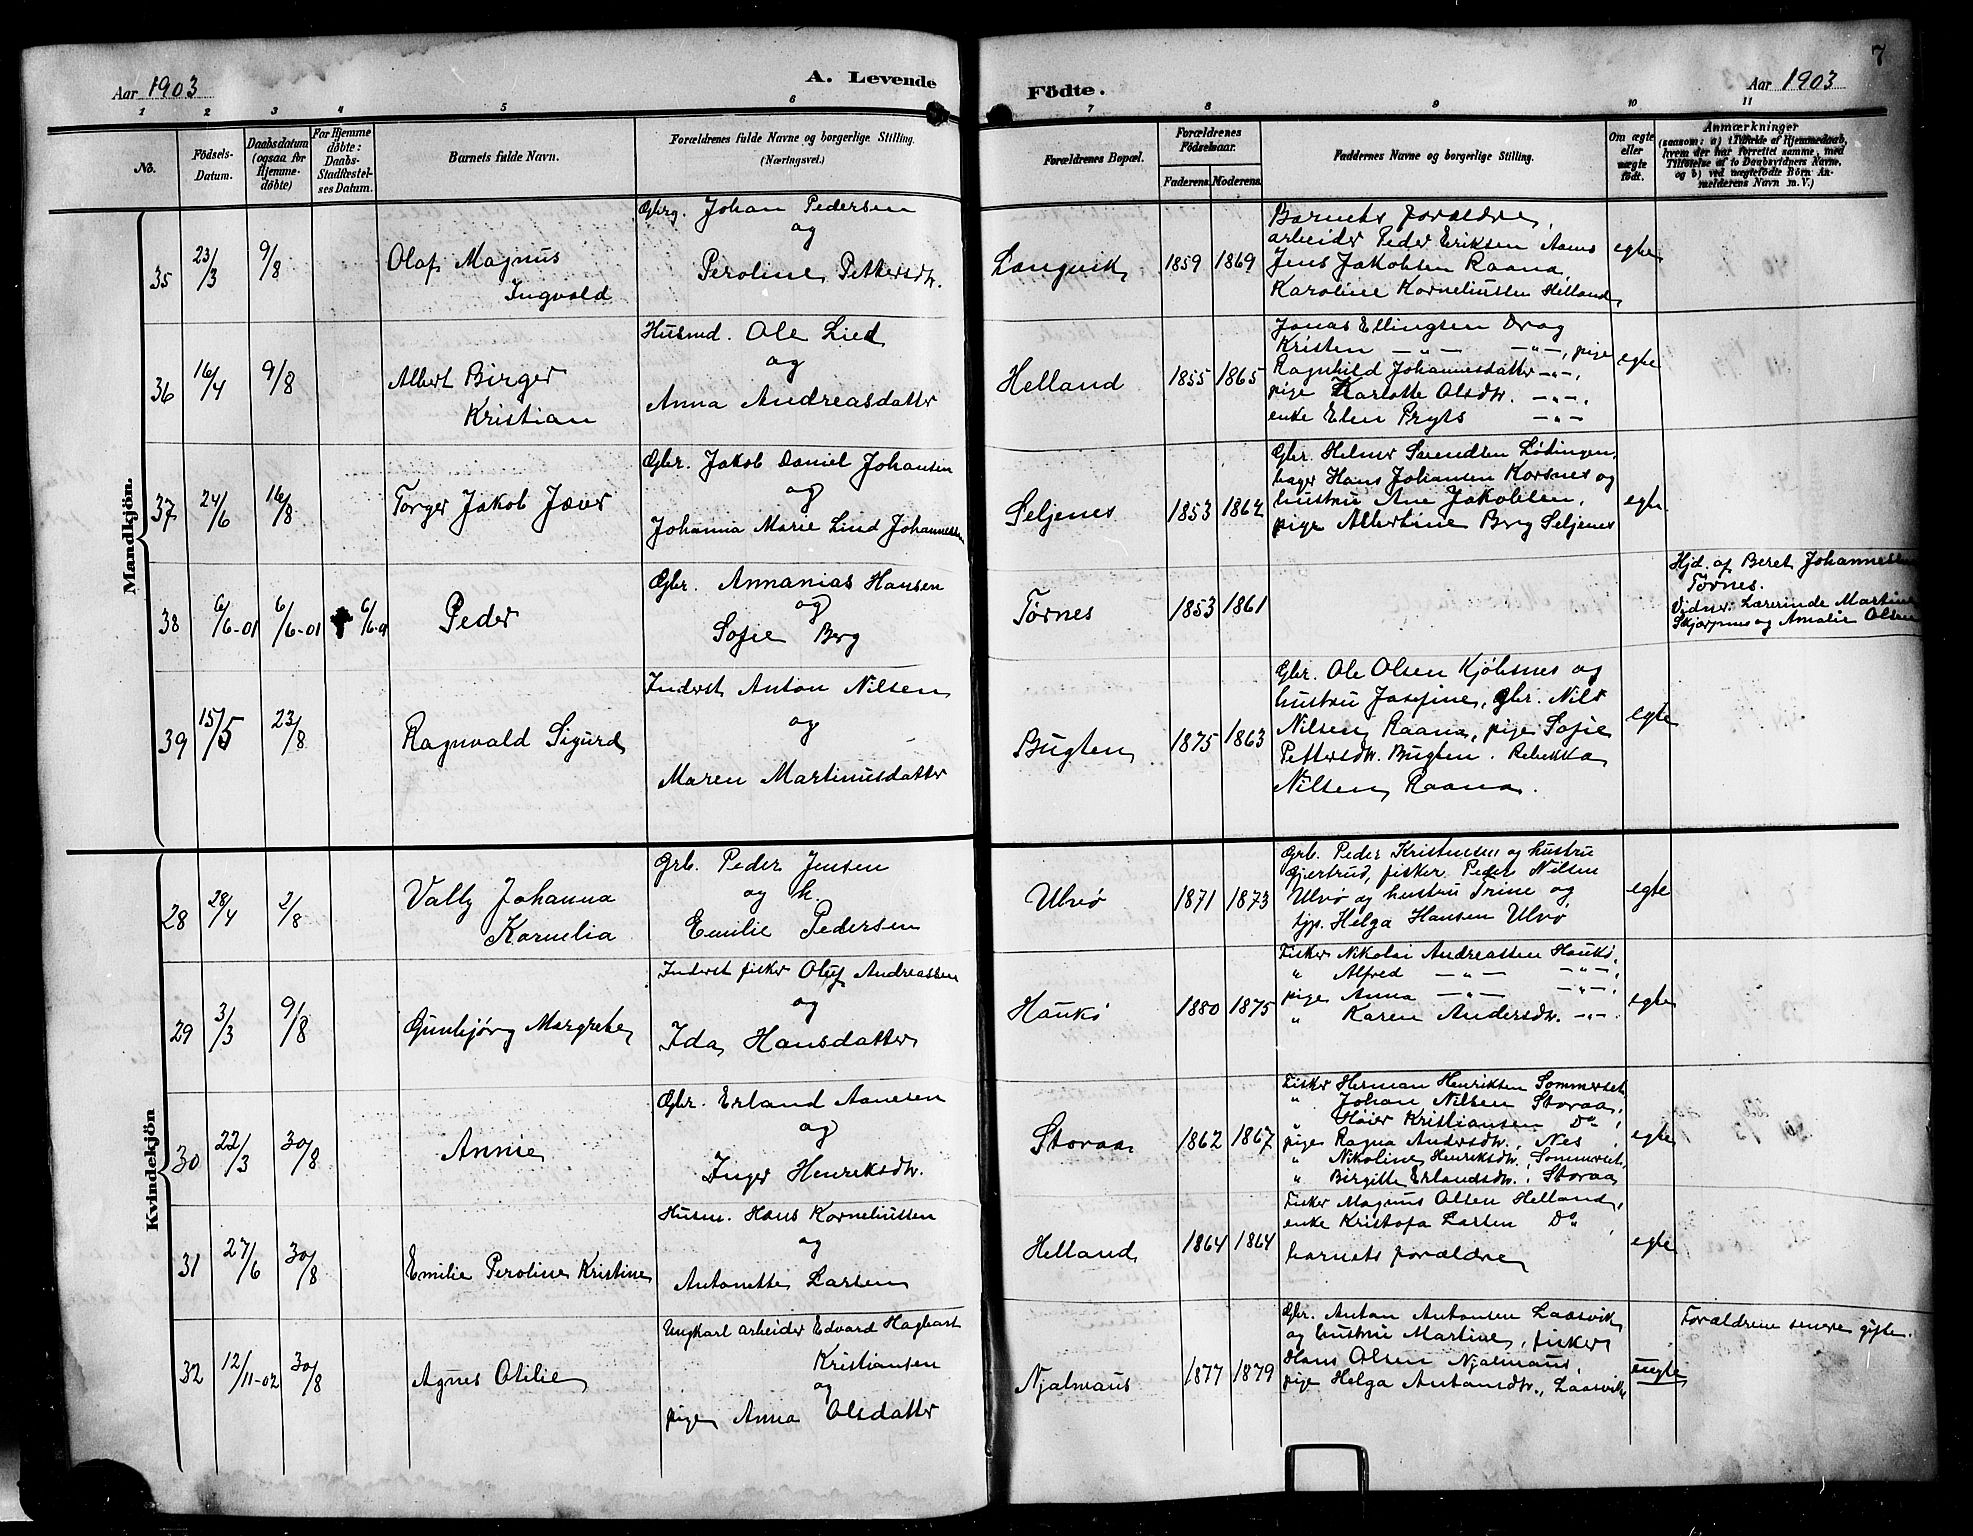 7
Aar 1903 A. Levende Födte. Aar 1903
1 2 3 4 5 6 7 8 9 10 11
No.
Födsels-Datum.
Daabsdatum (ogsaa for Hjemme-döbte)
For Hjemme döbte: Daabs-Stadfæstel-ses Datum.
Barnets fulde Navn.
Forældrenes fulde Navne og borgerlige Stilling. (Næringsvei.)
Forældrenes Bopæl.
Forældrenes Födselsaar.
Faderens. Moderens.
Faddernes Navne og borgerlige Stilling.
Om ægte eller uægte födt.
Anmærkninger
(saasom: a) i Tilfælde af Hjemmedaab, hvem der har forrettet samme, med Tilföielse af to Daabsvidners Navne, og b) ved uægtefödte Börn An-melderens Navn m. V.)
Mandkjön.
35 23/3 9/8 Olaf Magnus Ingvald
Gbrg. Johan Pedersen
og
Peroline Pettersdtr.
Langvik 1859 1869
Barnets forældre,
arbeider Peder Eriksen
Jens Jakobsen Raana,
Karoline Korneliussen Helland
egte
36 16/4 9/8 Albert Birger Kristian
Husmd. Ole Lied
og
Anna Andreasdatter
Helland 1855 1865
Jonas Ellingsen Drag
Kristen — " — — " —, pige
Ragnhild Johannesdatter — " —,
pige Karlotte Olsdtr. — " —,
enke Elen Pryts — " —
egte
37 24/6 16/8 Torger Jakob Jæver
Gbr. Jakob Daniel Johansen
og
Johanna Marie Lind Johannessen
Seljenes 1853 1864
Gbr. Helmer Lødingen,
Hans Johansen Korsnes og
hustru Ane Jakobsen,
pige Albertine Berg Seljenes
egte
38 6/6-01 6/6-01 6/6-01 Peder
Gbr. Annanias Hansen
og
Sofie Berg
Tørnes 1853 1861
Hjd. af Beret Johannessen
Tørnes.
Vidner: Lærerinde Martine
og Amalie Olsen
39 15/5 23/8 Ragnvald Sigurd
Inderst Anton Nilsen
og
Maren Martinusdatter
Bugten 1875 1863
Gbr. Ole Olsen Kjöbsnes og
hustru Josefine, gbr. Nils
Nilsen Raana, pige Sofie
Pettersdtr. Bugten. Rebekka
Nilsen Raana.
egte
Kvindekjön
28 28/4 2/8 Vally Johanna Kornelia
Grb. Peder Jensen
og h.
Emilie Pedersen
Ulvø 1871 1873
Grb. Peder Kristensen og hustru
Gjertrud, fisker Peder Nilsen
Ulvø og hustru Trine og
tjp. Helga Hansen Ulvø
egte
29 3/3 9/8 Gunbjørg Margrete
Inderst fisker Oluf Andreassen
og
Ida Hansdatter
Haukö 1880 1875
Fisker Nikolai Andreassen Haukö,
" Alfred — " — — " —,
pige Anna — " — — " —,
" Karen Andersdtr. — " —.
egte
30 22/3 30/8 Annie
Gbr. Erland Aanesen
og
Inger Henriksdtr.
Storaa 1862 1867
Fisker Herman Henriksen Sommerset,
" Johan Nilsen Storaa,
" Høier Kristiansen Do,
pige Ragna Andersdtr., Nes,
" Nikoline Henriksdtr., Sommerset,
" Birgitte Erlandsdtr., Storaa
egte
31 27/6 30/8 Emilie Peroline Kristine
Husm. Hans Korneliussen
og
Antonette Larsen
Helland 1864 1864
Fisker Magnus Olsen Helland,
enke Kristofa Larsen Do,
barnets forældre
egte
32 12/11-02 30/8 Agnes Otilie
Ungkarl arbeider Edvard Hagbart
Kristiansen
og
pige Anna Olsdatter
Njalmaus 1877 1879
Gbr. Anton Antonsen Laasvik
og hustru Martine, fisker
Hans Olsen Njalmaus,
pige Helga Antonsdtr., Laasvik
uegte
Forældrene senere gifte.